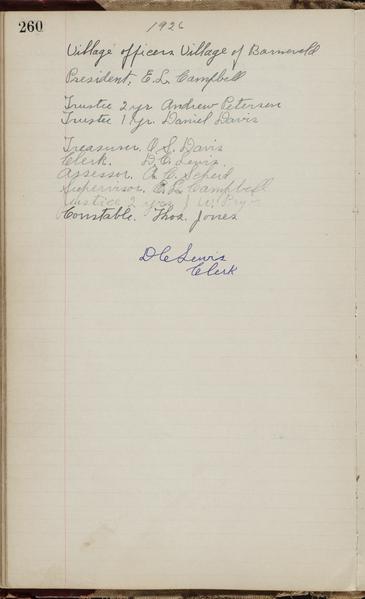 260
1926
Village officers Village of Barneveld
President, E.L. Campbell
Trustee 2 yr Andrew Peterson
Trustee 1 yr. Daniel Davis
Treasurer. O S. Davis
Clerk. D.C. Lewis
Assessor. A C. Scheid
Supervisor. E.L. Campbell
Justice 2 yrs J W. Pryor
Constable. Thos. Jones
D C Lewis
Clerk